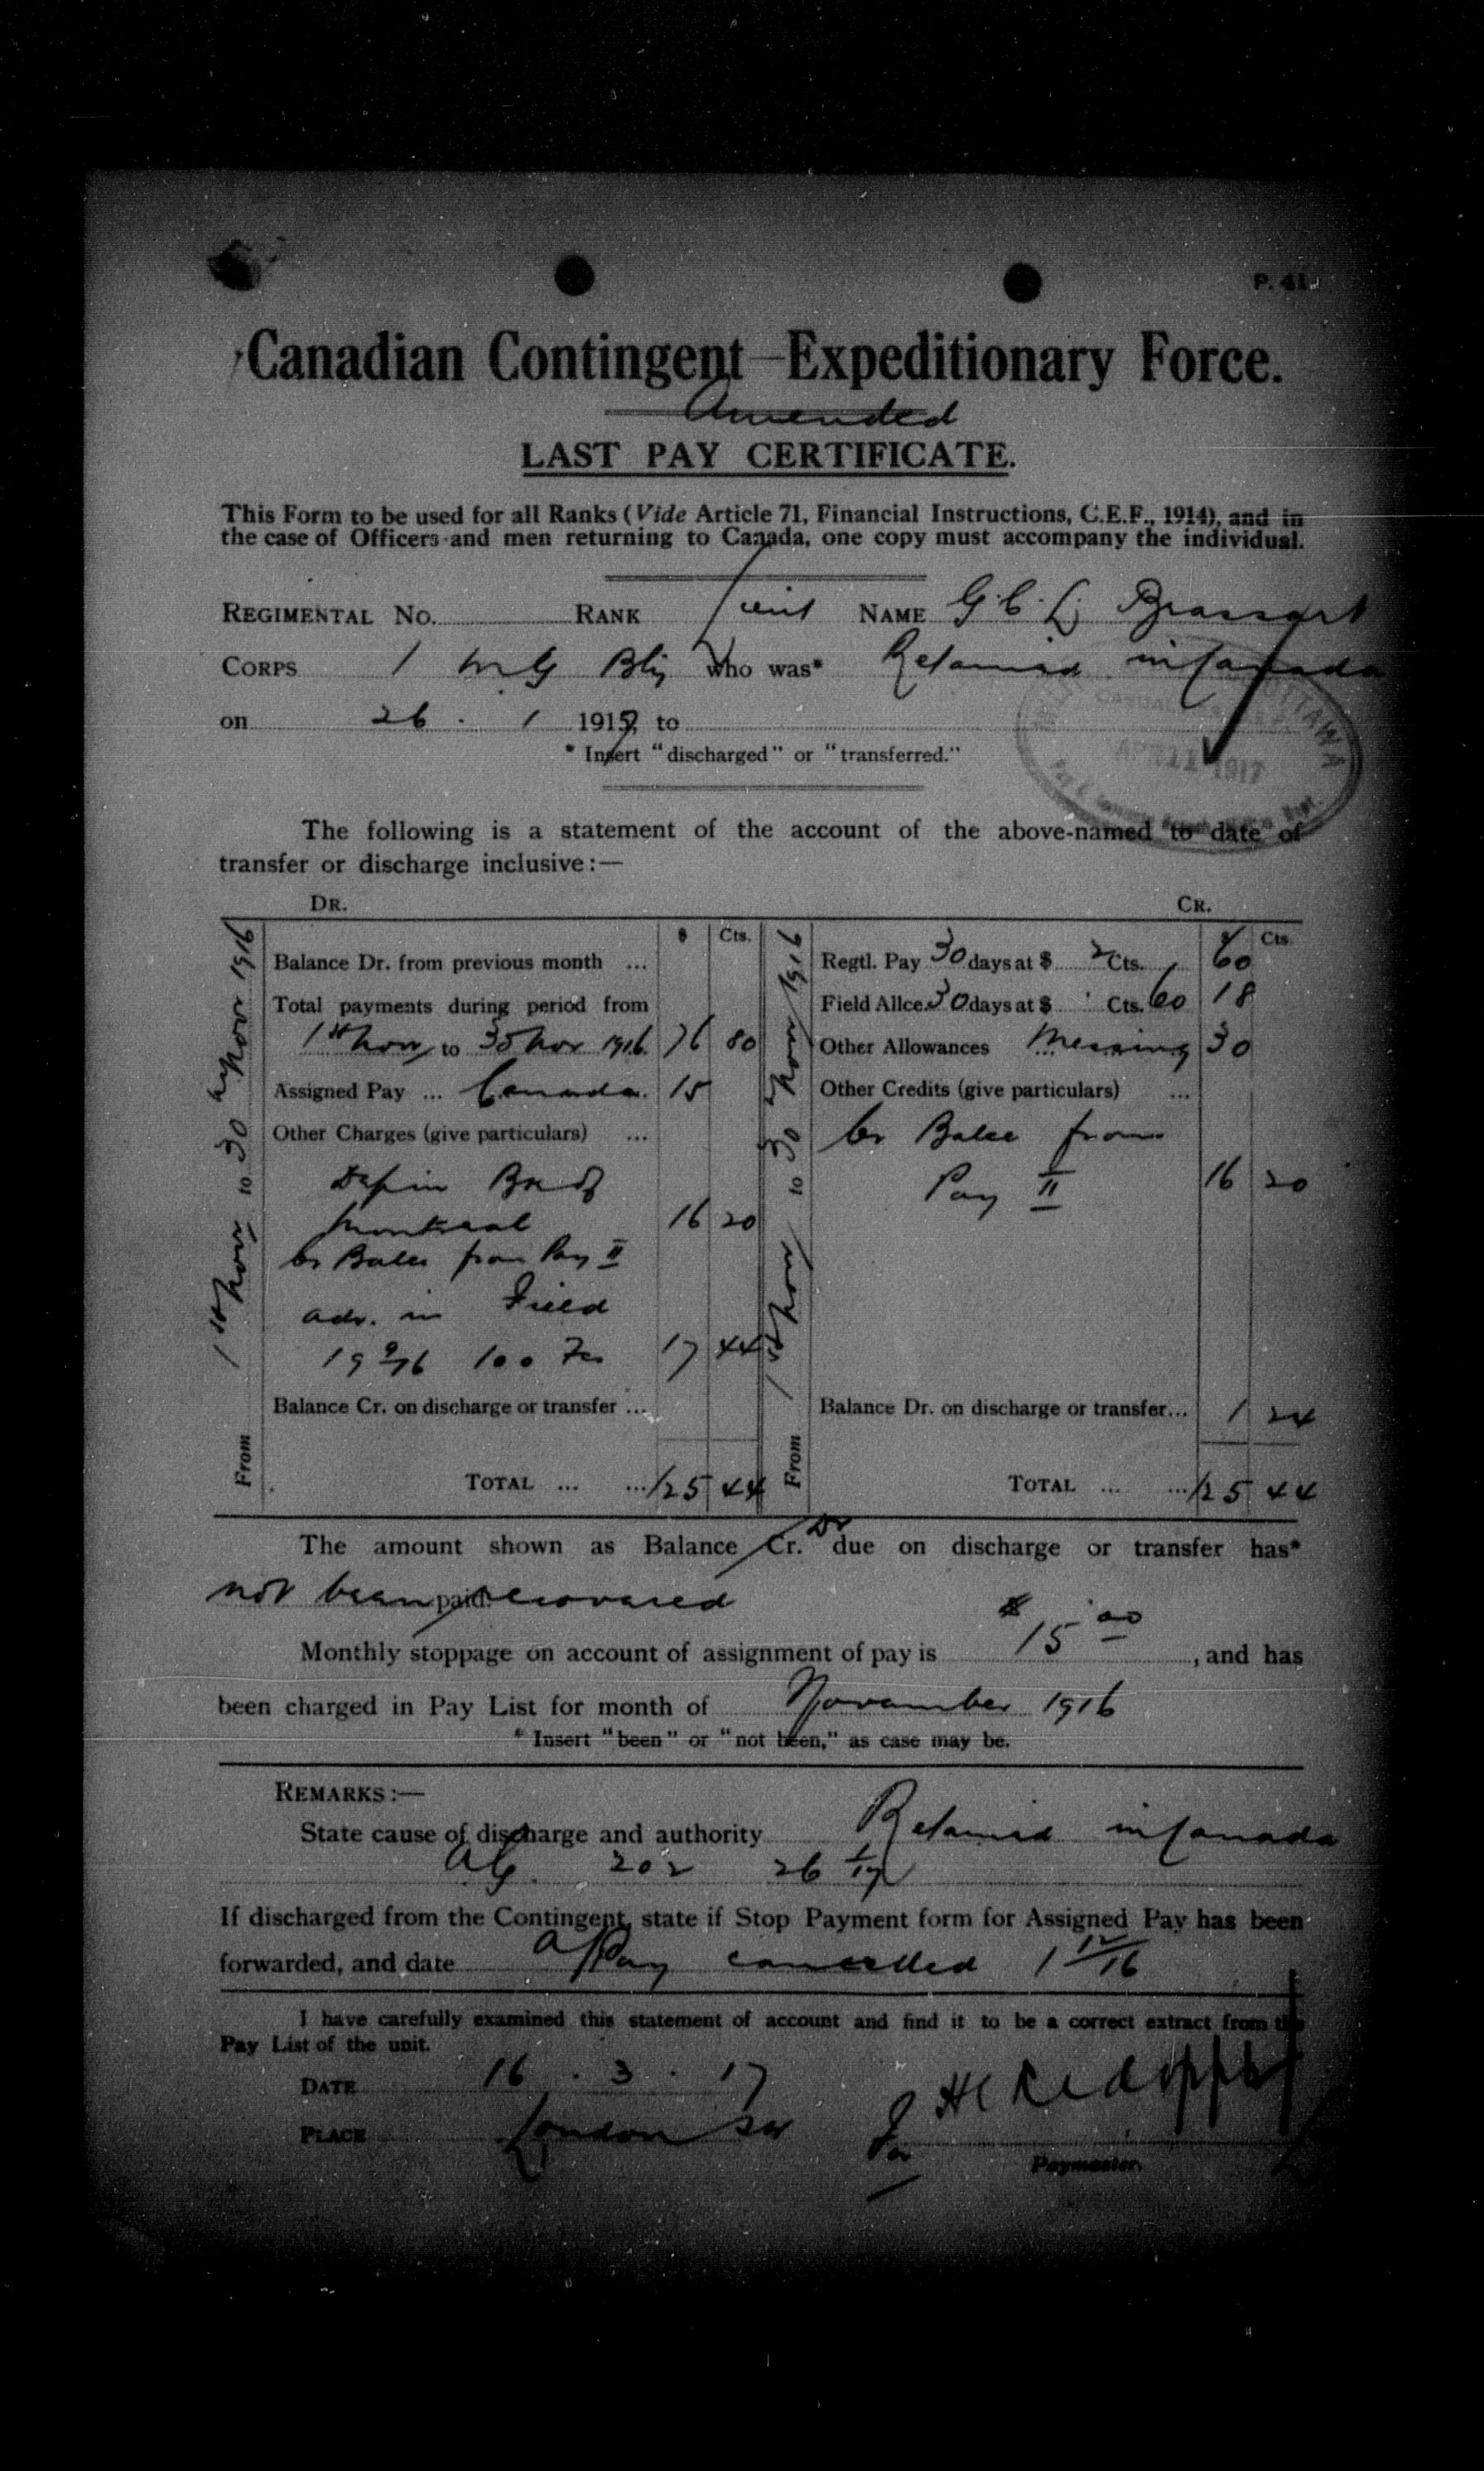 P. 41.
Canadian Contingent Expeditionary Force.
Amended
LAST PAY CERTIFICATE.
This Form to be used for all Ranks (Vide Article 71, Financial Instructions, C.E.F., 1914), and in
the case of Officers and men returning to Canada, one copy must accompany the individual.
REGIMENTAL NO. RANK Lieut NAME G. C. L.
CORPS 1 M G who was* Retained in Canada
on 26 . 1 1917 to
* Insert "discharged" or "transferred."
OTTAWA
APR 11 1917
The following is a statement of the account of the above-named to date of
transfer or discharge inclusive:—
DR. CR.
From 1st Nov to 30 Nov 1916
$ Cts.
Balance Dr. from previous month ...
Total payments during period from
1st Nov to 30 Nov 1916. 76 80
Assigned Pay ... Canada. 15
Other Charges (give particulars) ...
Dep in Bk of
Montreal 16 20
Cr Balce from Pay II
adv. in Field
19 9/16 100 Fcs 17 44
Balance Cr. on discharge or transfer ...
TOTAL ... ... 125 44
From 1st Nov to 30 Nov 1916
$ Cts
Regtl. Pay 30 days at $ 2 Cts. 60
Field Allce. 30 days at $ Cts. 60 18
Other Allowances Messing 30
Other Credits (give particulars) ...
Cr Balce from
Pay II 16 20
Balance Dr. on discharge or transfer... 1 24
TOTAL ... ... 125 44
The amount shown as Balance Cr. Dr due on discharge or transfer has*
not been paid recovered
Monthly stoppage on account of assignment of pay is $15 00, and has
been charged in Pay List for month of November 1916
* Insert "been" or "not been," as case may be.
REMARKS:—
State cause of discharge and authority Retained in Canada
AG 202 26 1/17
If discharged from the Contingent, state if Stop Payment form for Assigned Pay has been
forwarded, and date a/Pay cancelled 1 12/16
I have carefully examined this statement of account and find it to be a correct extract from the
Pay List of the unit.
DATE 16 . 3 . 17
PLACE London SW
For
Paymaster.